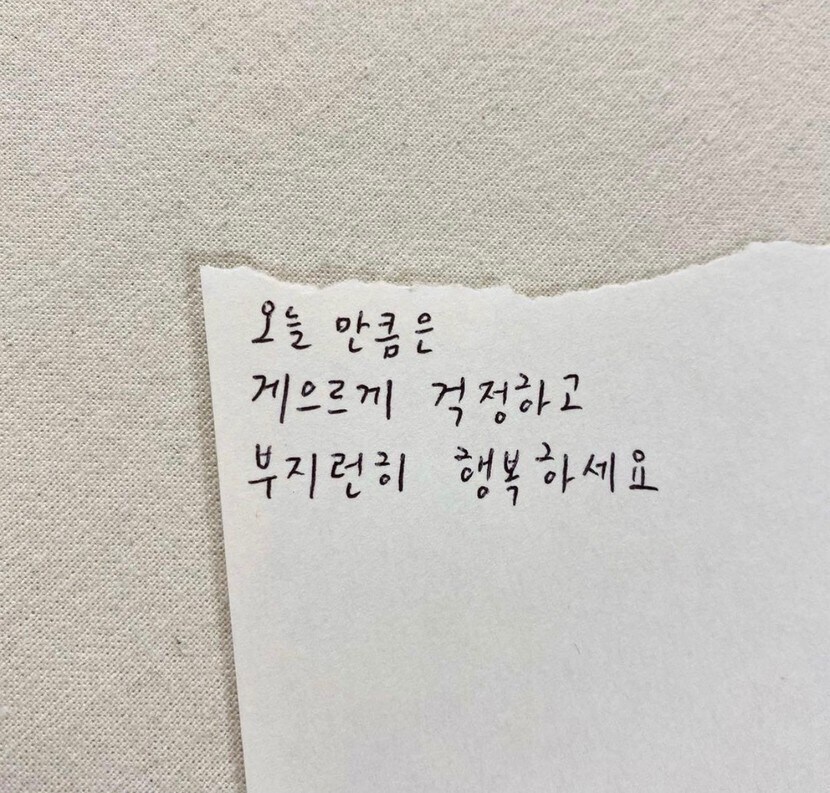 오늘 만큼은
게으르게 걱정하고
부지런히 행복하세요